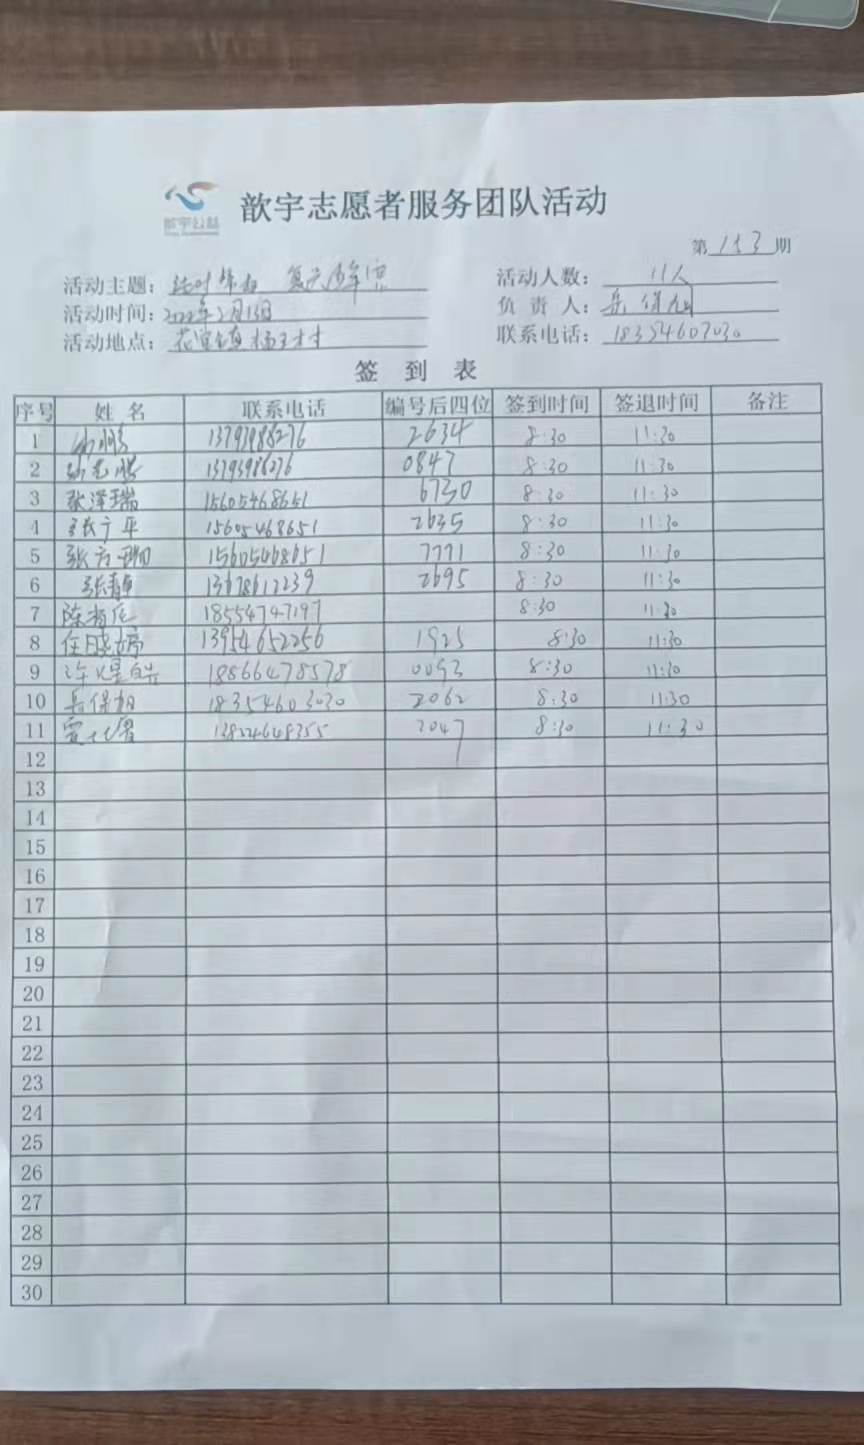 歆宇公益
歆宇志愿者服务团队活动
第 153 期
活动主题: 结对帮扶 活动人数: 11人
活动时间: 2022年2月13日 负责人: 岳保旭
活动地点: 花官镇杨王村 联系电话: 18354603030
签到表
序号 姓名 联系电话 编号后四位 签到时间 签退时间 备注
1 13793986276 2634 8:30 11:30
2 13793986276 0847 8:30 11:30
3 张泽瑞 15605468651 6730 8:30 11:30
4 张广平 15605468651 2635 8:30 11:30
5 张方珊 15605468651 7771 8:30 11:30
6 张静 13678612239 2695 8:30 11:30
7 18554747197 8:30 11:30
8 任晓婷 13954652256 1925 8:30 11:30
9 18866478578 0093 8:30 11:30
10 岳保旭 18354603030 2062 8:30 11:30
11 2047 8:30 11:30
12
13
14
15
16
17
18
19
20
21
22
23
24
25
26
27
28
29
30